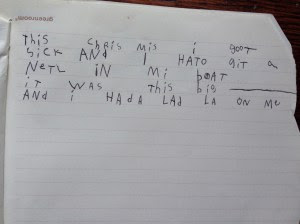 greenroom
This CHRis mis i goot
SiCK AND I HATO giT a
NeTL iN Mi pOAT
iT WAS This big
AND i HADa LAd LA ON Me